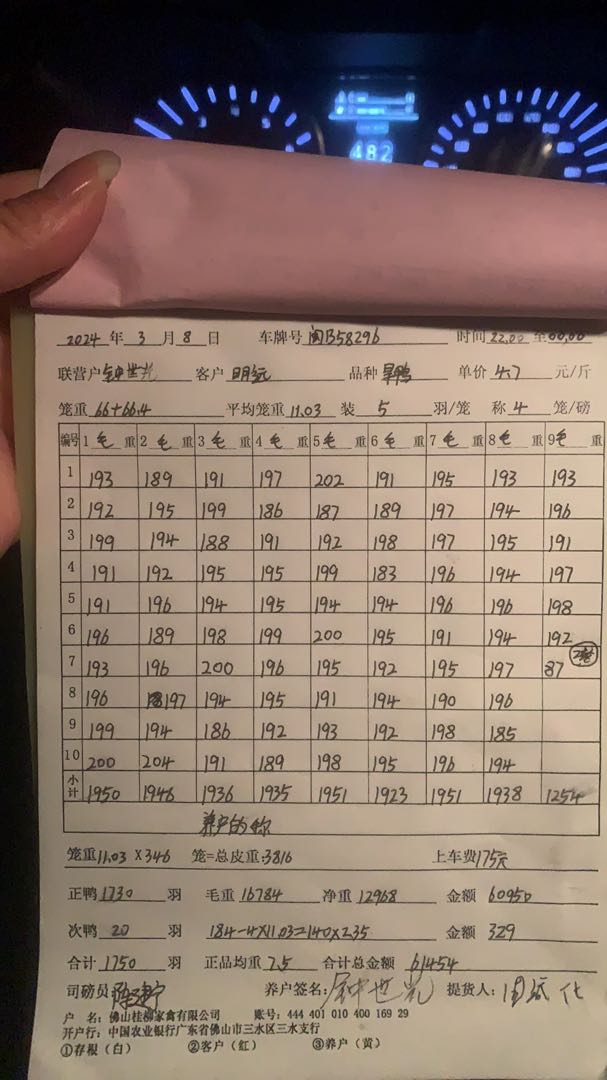 482
2024 年 3 月 8 日 车牌号 闽B58296 时间 22.00 至 00.00
联营户 钟世光 客户 明纭 品种 旱鸭 单价 4.7 元/斤
笼重 66+66.4 平均笼重 11.03 装 5 羽/笼 称 4 笼/磅
编号 1 毛 重 2 毛 重 3 毛 重 4 毛 重 5 毛 重 6 毛 重 7 毛 重 8 毛 重 9 毛 重
1 193 189 191 197 202 191 195 193 193
2 192 195 199 186 187 189 197 194 196
3 199 194 188 191 192 198 197 195 191
4 191 192 195 195 199 183 196 194 197
5 191 196 194 195 194 194 196 196 198
6 196 189 198 199 200 195 191 194 192
7 193 196 200 196 195 192 195 197 87
8 196 197 194 195 191 194 190 196
9 199 194 186 192 193 192 198 185
10 200 204 191 189 198 195 196 194
小计 1950 1946 1936 1935 1951 1923 1951 1938 1254
养户的称
笼重 11.03 X 346 笼=总皮重:3816 上车费 175元
正鸭 1730 羽 毛重 16784 净重 12968 金额 60950
次鸭 20 羽 184-4X11.03=140X2.35 金额 329
合计 1750 羽 正品均重 7.5 合计总金额 61454
司磅员 养户签名: 钟世光 提货人:
户 名: 佛山桂柳家禽有限公司 账号: 444 401 010 400 169 29
开户行: 中国农业银行广东省佛山市三水区三水支行
①存根（白） ②客户（红） ③养户（黄）